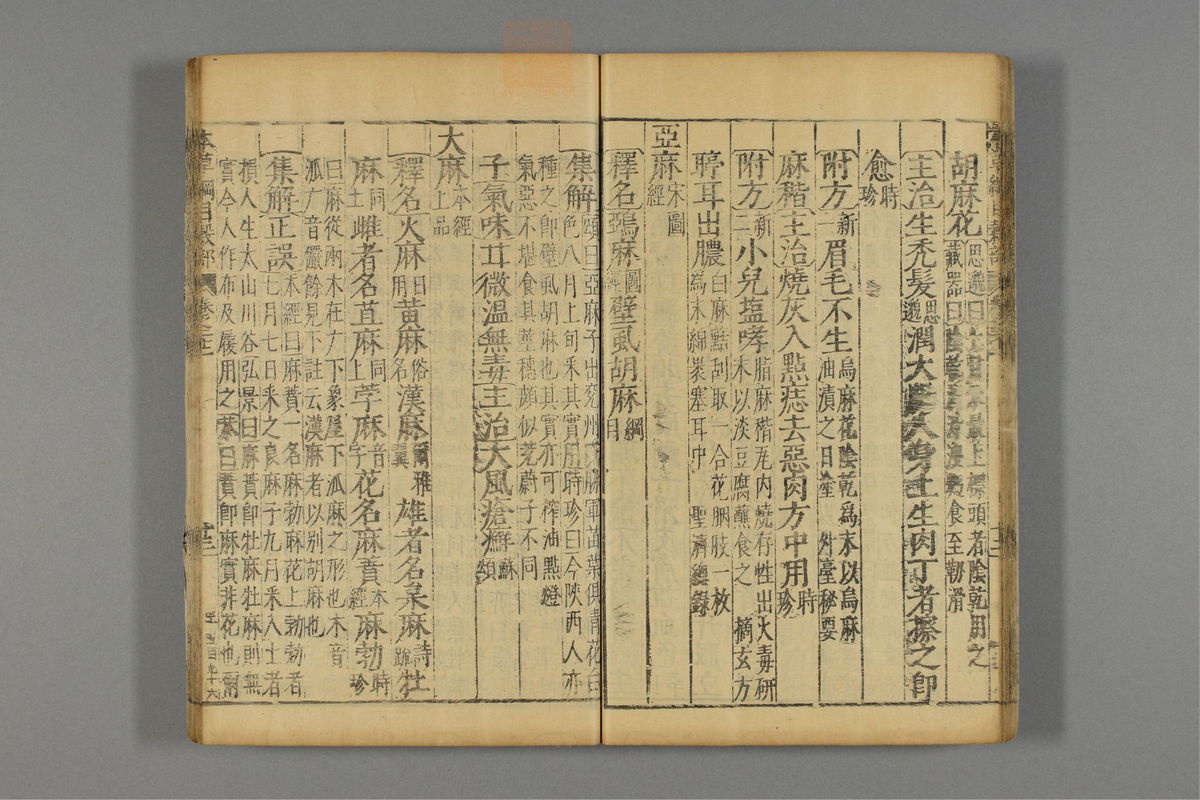 胡麻花思邈曰七月采最上標頭者陰乾用之藏器曰陰乾漬汁溲麪食至韌滑
主治生禿髮思邈潤大腸人身上生肉丁者擦之卽
愈時珍
附方新一眉毛不生烏麻花陰乾爲末以烏麻油漬之日塗外臺秘要
麻稭主治燒灰入點痣去惡肉方中用時珍
附方新二小兒塩哮脂麻稭瓦內燒存性出火毒研末以淡豆腐蘸食之摘玄方
聤耳出膿白麻稭刮取一合花胭肢一枚爲末綿裹塞耳中聖濟總錄
亞麻宋圖經
釋名鵶麻圖經壁虱胡麻綱目
集解頌曰亞麻子出兗州威勝軍苗葉俱青花白色八月上旬釆其實用時珍曰今陝西人亦
種之卽壁虱胡麻也其實亦可榨油點燈氣惡不堪食其莖穗頗似茺蔚子不同
子氣味甘微溫無毒主治大風瘡癬蘇頌
大麻本經上品
釋名火麻日用黃麻俗名漢麻爾雅翼雄者名枲麻詩疏牡
麻同上雌者名苴麻同上荸麻音字花名麻蕡本經麻勃時珍
曰麻從兩木在广下象屋下𣏟麻之形也木音𣏟广音儼餘見下註云漢麻者以别胡麻也
集解正誤本經曰麻蕡一名麻勃麻花上勃勃者七月七日釆之良麻子九月釆入土者
損人生太山川谷弘景曰麻蕡卽牡麻牡麻則無實今人作布及履用之恭曰蕡卽麻實非花也爾
本草綱目穀部
卷之二十二